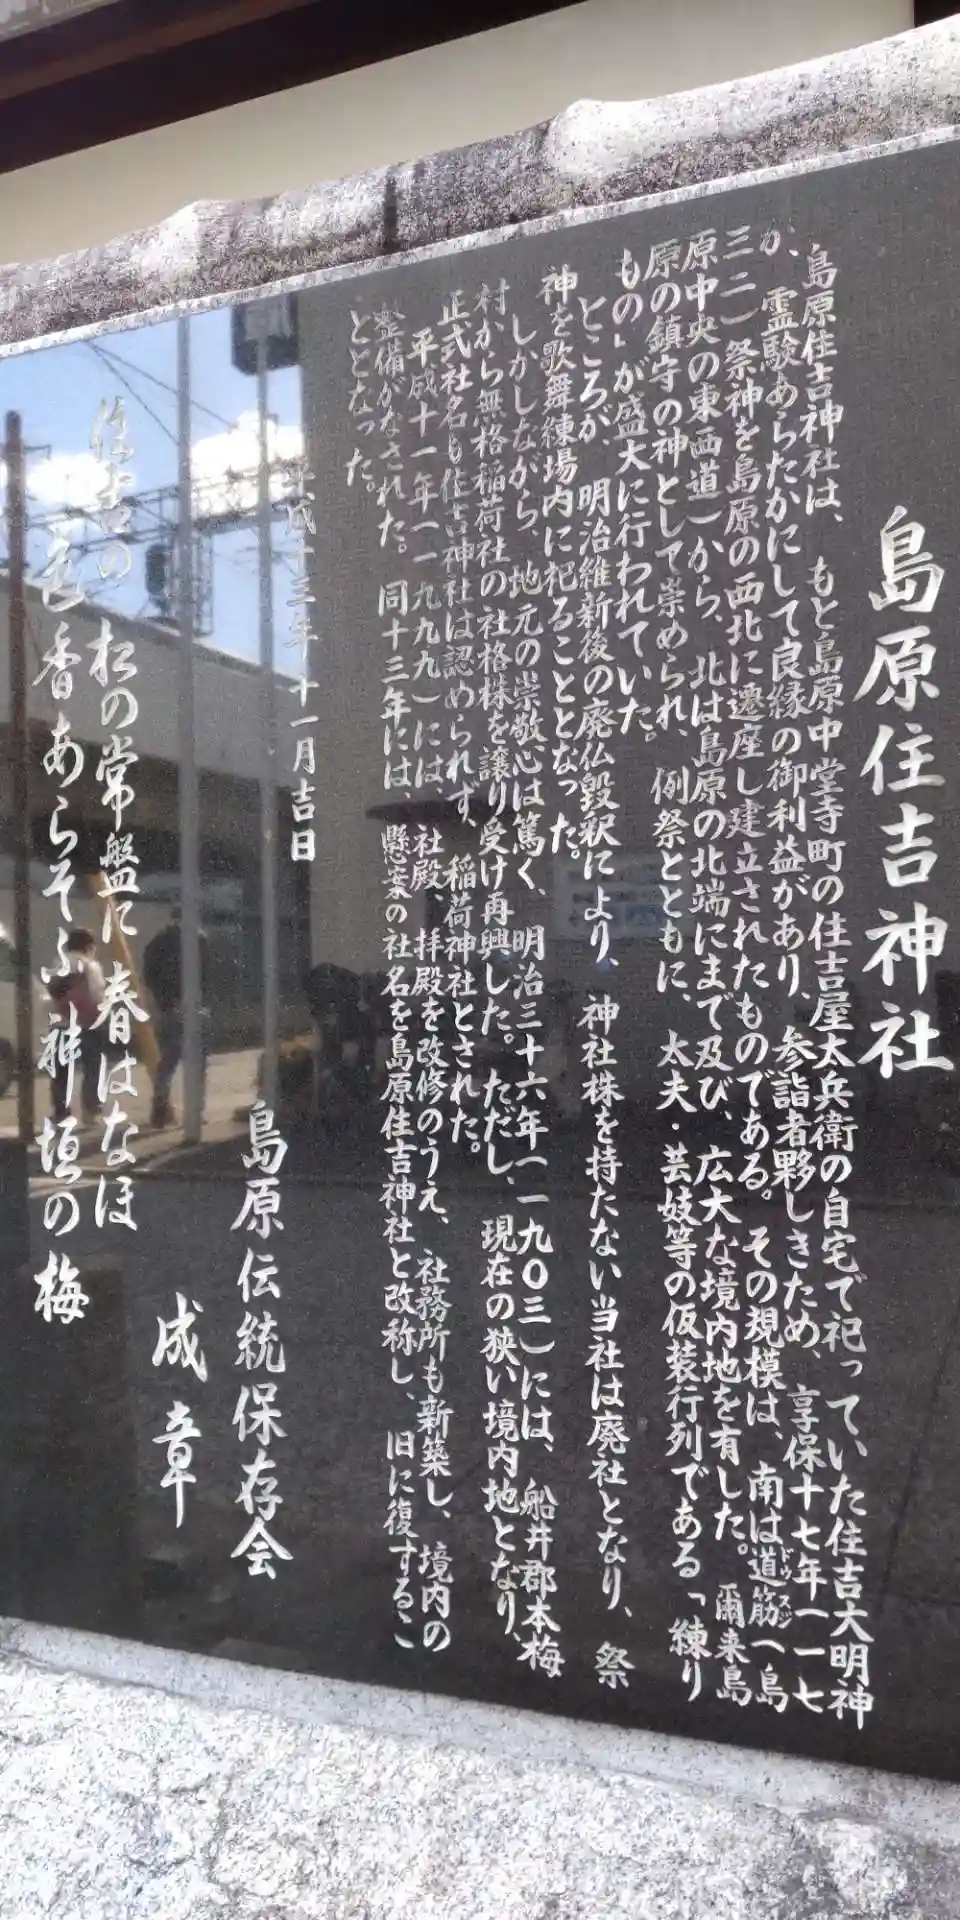 島原住吉神社
島原住吉神社は、もと島原中堂寺町の住吉屋太兵衛の自宅で祀っていた住吉大明神
が、霊験あらたかにして良縁の御利益があり、参詣者夥しきため、享保十七年(一七
三二)祭神を島原の西北に遷座し建立されたものである。その規模は、南は道筋(島
ドウスジ
原中央の東西道)から、北は島原の北端にまで及び、広大な境内地を有した。爾来島
原の鎮守の神として崇められ、例祭とともに、太夫・芸妓等の仮装行列である「練り
もの」が盛大に行われていた。
ところが、明治維新後の廃仏毀釈により、神社株を持たない当社は廃社となり、祭
神を歌舞練場内に祀ることとなった。
しかしながら、地元の崇敬心は篤く、明治三十六年(一九〇三)には、船井郡本梅
村から無格稲荷社の社格株を譲り受け再興した。ただし、現在の狭い境内地となり、
正式社名も住吉神社は認められず、稲荷神社とされた。
平成十一年(一九九九)には、社殿、拝殿を改修のうえ、社務所も新築し、境内の
整備がなされた。同十三年には、懸案の社名を島原住吉神社と改称し、旧に復するこ
ととなった。
平成十三年十一月吉日
島原伝統保存会
成章
住吉の 松の常盤に 春はなほ
色香あらそふ 神垣の梅